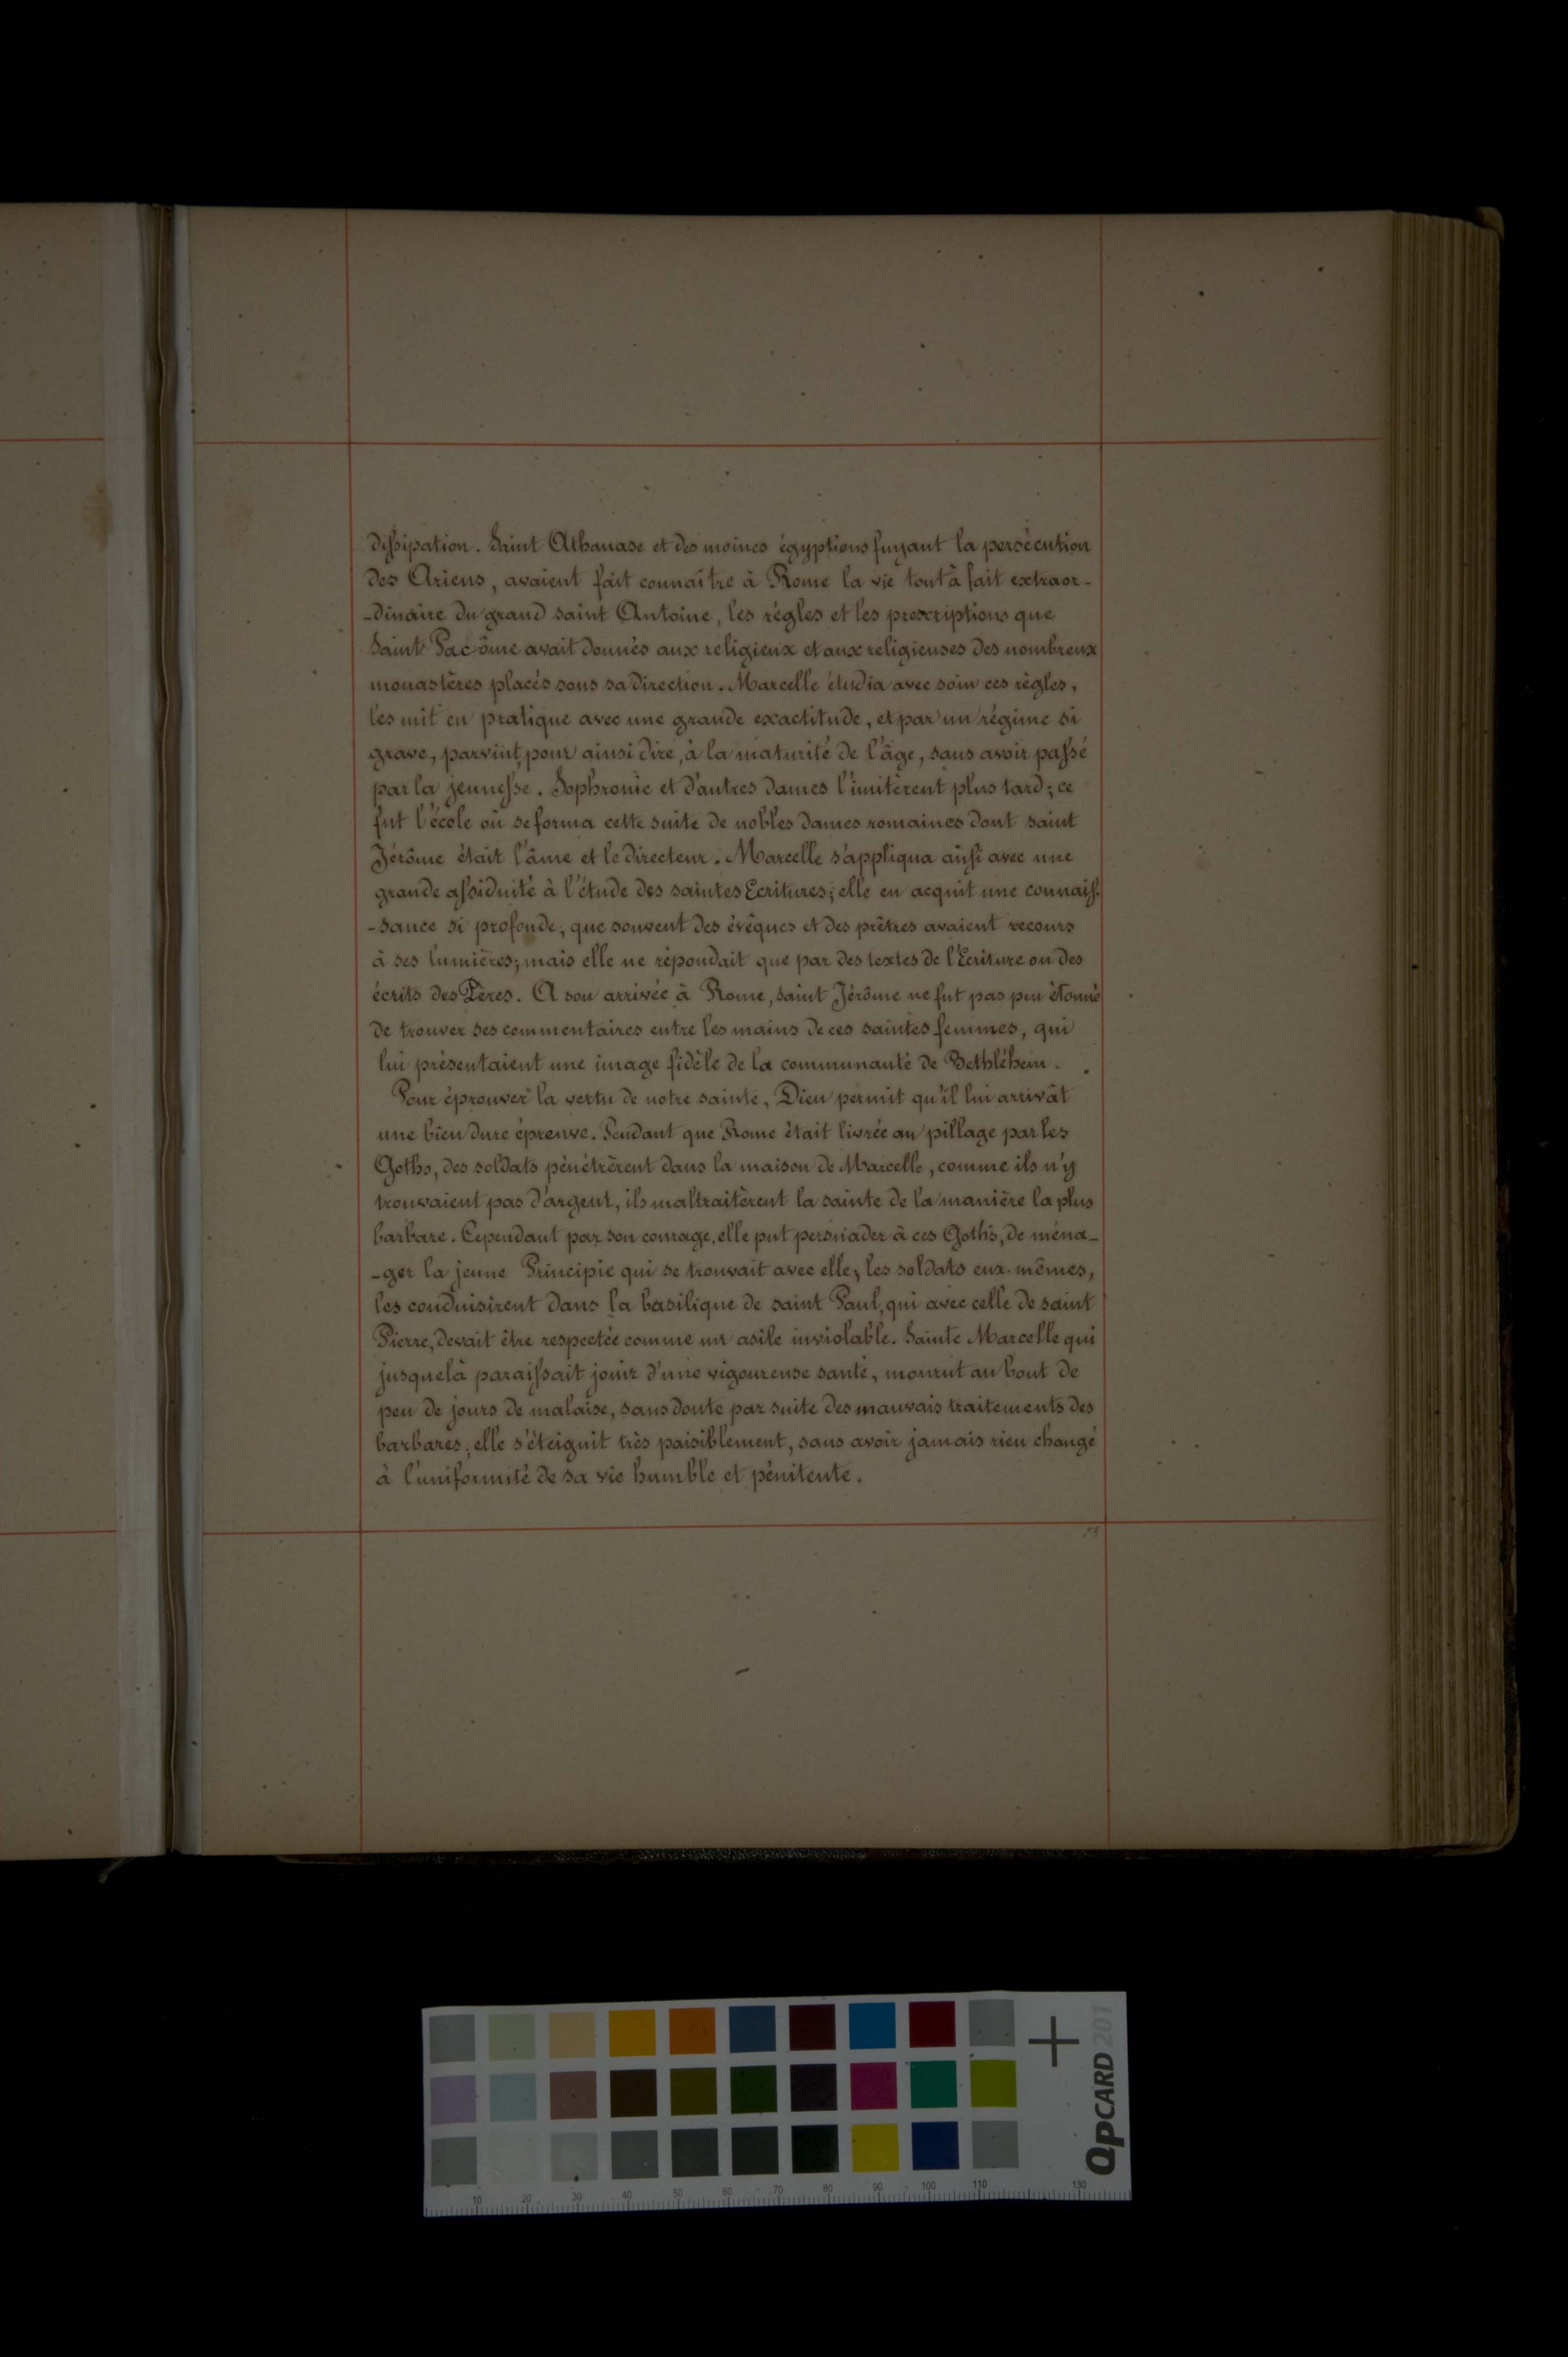 dissipation. Saint Athanase et des moines égyptiens fuyant la persécution
des Ariens, avaient fait connaître à Rome la vie tout à fait extraor-
-dinaire du grand saint Antoine, les règles et les prescriptions que
Saint Pacôme avait donnés aux religieux et aux religieuses des nombreux
monastères placés sous sa direction. Marcelle étudia avec soin ces règles,
les mit en pratique avec une grande exactitude, et par un régime si
grave, parvint, pour ainsi dire, à la maturité de l'âge, sans avoir passé
par la jeunesse. Sophronie et d'autres dames l'imitèrent plus tard; ce
fut l'école où se forma cette suite de nobles dames romaines dont saint
Jérôme était l'âme et le directeur. Marcelle s'appliqua aussi avec une
grande assiduité à l'étude des saintes Ecritures; elle en acquit une connais-
-sance si profonde, que souvent des évêques et des prêtres avaient recours
à ses lumières; mais elle ne répondait que par des textes de l'Ecriture ou des
écrits des Pères. A son arrivée à Rome, saint Jérôme ne fut pas peu étonné
de trouver ses commentaires entre les mains de ces saintes femmes, qui
lui présentaient une image fidèle de la communauté de Bethléhem.
Pour éprouver la vertu de notre sainte, Dieu permit qu'il lui arrivât
une bien dure épreuve. Pendant que Rome était livrée au pillage par les
Goths, des soldats pénétrèrent dans la maison de Marcelle, comme ils n'y
trouvaient pas d'argent, ils maltraitèrent la sainte de la manière la plus
barbare. Cependant par son courage, elle put persuader à ces Goths, de ména-
-ger la jeune Principie qui se trouvait avec elle; les soldats eux-mêmes,
les conduisirent dans la basilique de saint Paul, qui avec celle de saint
Pierre, devait être respectée comme un asile inviolable. Sainte Marcelle qui
jusque là paraissait jouir d'une vigoureuse santé, mourut au bout de
peu de jours de malaise, sans doute par suite des mauvais traitements des
barbares; elle s'éteignit très paisiblement, sans avoir jamais rien changé
à l'uniformité de sa vie humble et pénitente.
QPCARD 201
10 20 30 40 50 60 70 80 90 100 110 130